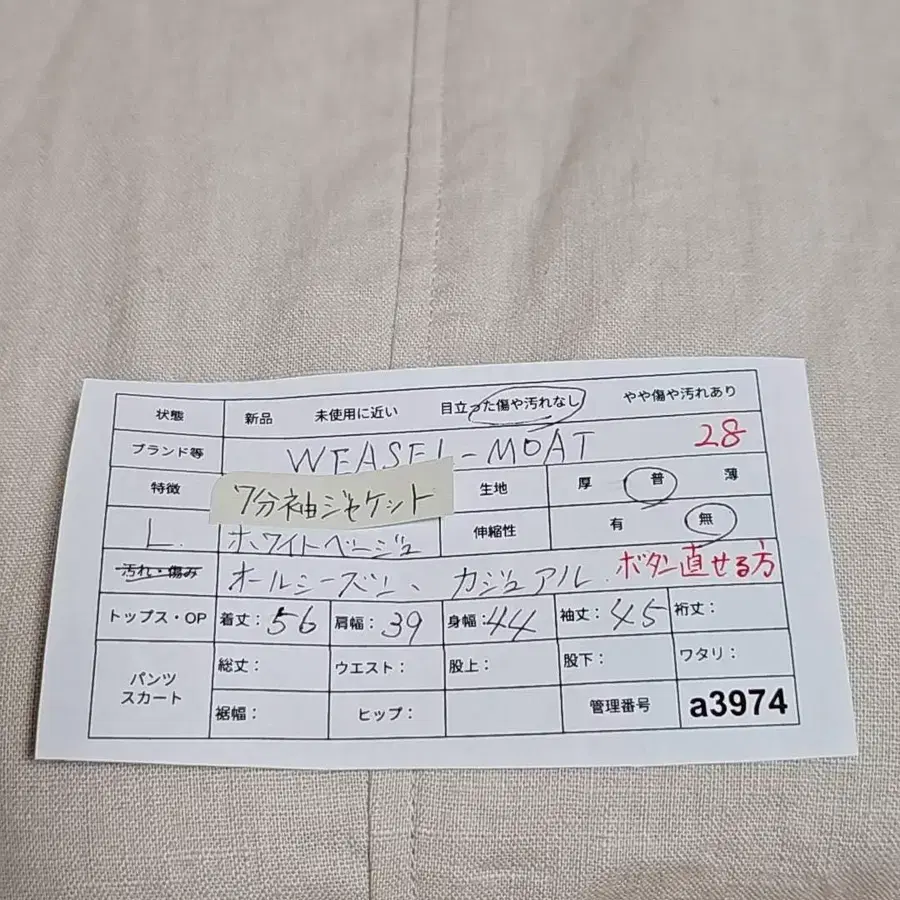 状態 新品 未使用に近い 目立った傷や汚れなし やや傷や汚れあり
ブランド等 WEASEL-MOAT 28
特徴 7分袖ジャケット 生地 厚 普 薄
L. ホワイトベージュ 伸縮性 有 無
汚れ・傷み オールシーズン、カジュアル. ボタン直せる方
トップス・OP 着丈:56 肩幅:39 身幅:44 袖丈:45 裄丈:
パンツ 総丈: ウエスト: 股上: 股下: ワタリ:
スカート 裾幅: ヒップ: 管理番号 a3974